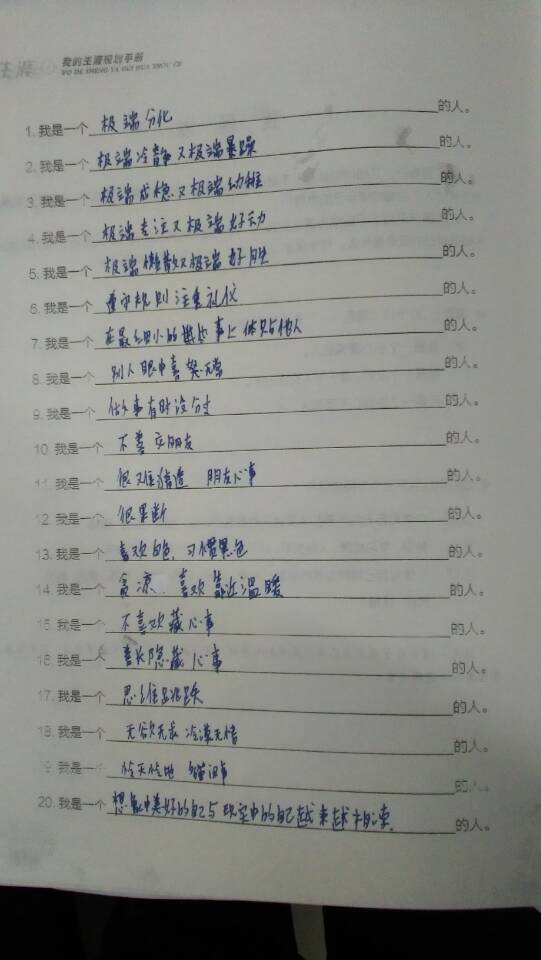 生涯
我的生涯规划手册
WO DE SHENG YA GUI HUA SHOU CE
1. 我是一个 极端分化 的人。
2. 我是一个 极端冷静又极端暴躁 的人。
3. 我是一个 极端成稳又极端幼稚 的人。
4. 我是一个 极端专注又极端好动 的人。
5. 我是一个 极端懒散又极端好胜 的人。
6. 我是一个 遵守规则注重礼仪 的人。
7. 我是一个 在最细小的 事上体贴他人 的人。
8. 我是一个 别人眼中喜怒无常 的人。
9. 我是一个 做事有时没分寸 的人。
10. 我是一个 不善交朋友 的人。
11. 我是一个 很难猜透 朋友心事 的人。
12. 我是一个 很果断 的人。
13. 我是一个 喜欢白色,习惯黑色 的人。
14. 我是一个 贪凉,喜欢靠近温暖 的人。
15. 我是一个 不喜欢藏心事 的人。
16. 我是一个 善长隐藏心事 的人。
17. 我是一个 思维跳跃 的人。
18. 我是一个 无欲无求 冷漠无情 的人。
19. 我是一个 的人。
20. 我是一个 想象中美好的自己与现实中的自己越来越相读. 的人。